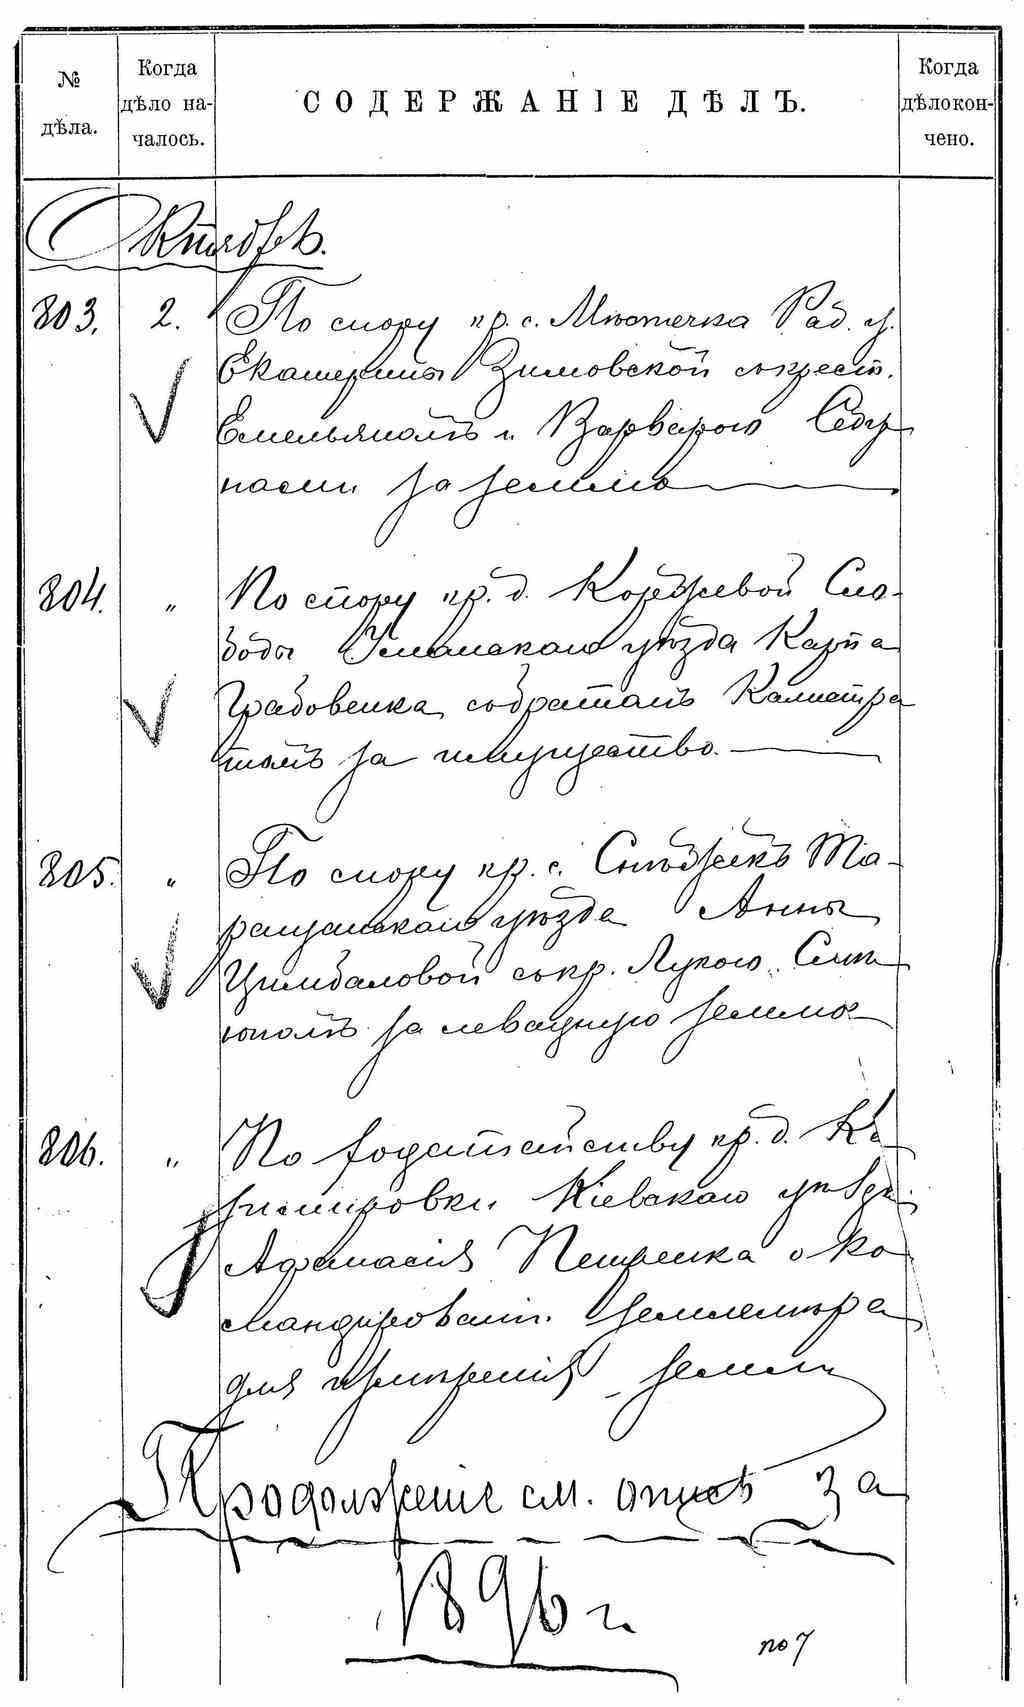 № дѣла.
Когда дѣло на-чалось.
СОДЕРЖАНІЕ ДѢЛЪ.
Когда дѣло кон-чено.
Октябрь.
803. 2. По спору кр. с. Мѣстечка Рад. у.
Екатерины Зимовской съ крест.
Емельяномъ и Варварою
за землю
804. " По спору кр. д. Коржевой Сло-
боды Уманскаго уѣзда Карпа
Грабовенка съ братомъ Калистра
томъ за имущество.
805. " По спору кр. с. Та-
ращанскаго уѣзда Анны
Цимбаловой съ кр. Лукою
за левадную землю
806. " По ходатайству кр. д. Ка
зимировки Кіевскаго уѣзда
Афанасія Петренка о ко
мандированіи землемѣра
для измѣренія земли
Продолженіе см. опись за
1896 г.
по 7